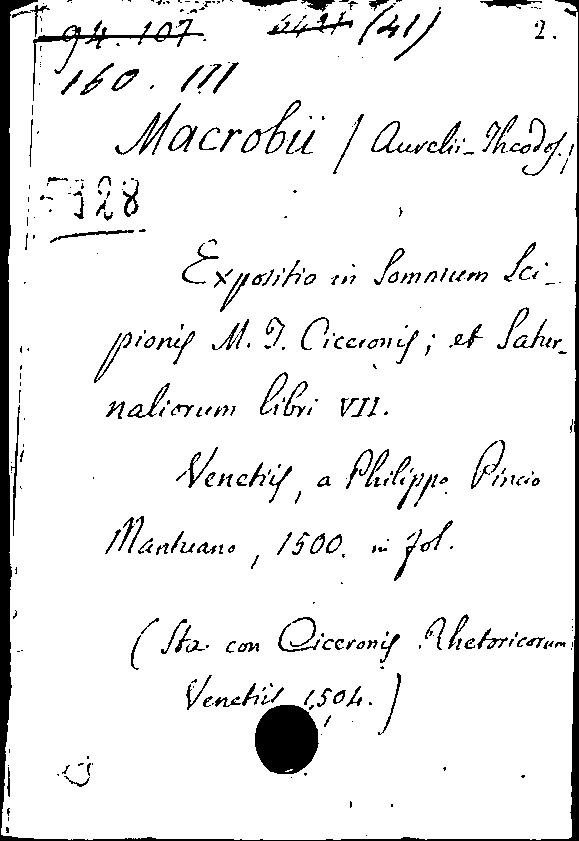 94. 107. (41) 2.
160. III
Macrobii / Aurelii-Theodos. /
328
Expositio in Somnium Sci-
pionis M. T. Ciceronis; et Satur-
naliorum libri VII.
Venetiis, a Philippo Pincio
Mantuano, 1500. in fol.
(Sta con Ciceronis Rhetoricorum
Venetiis 1504.)